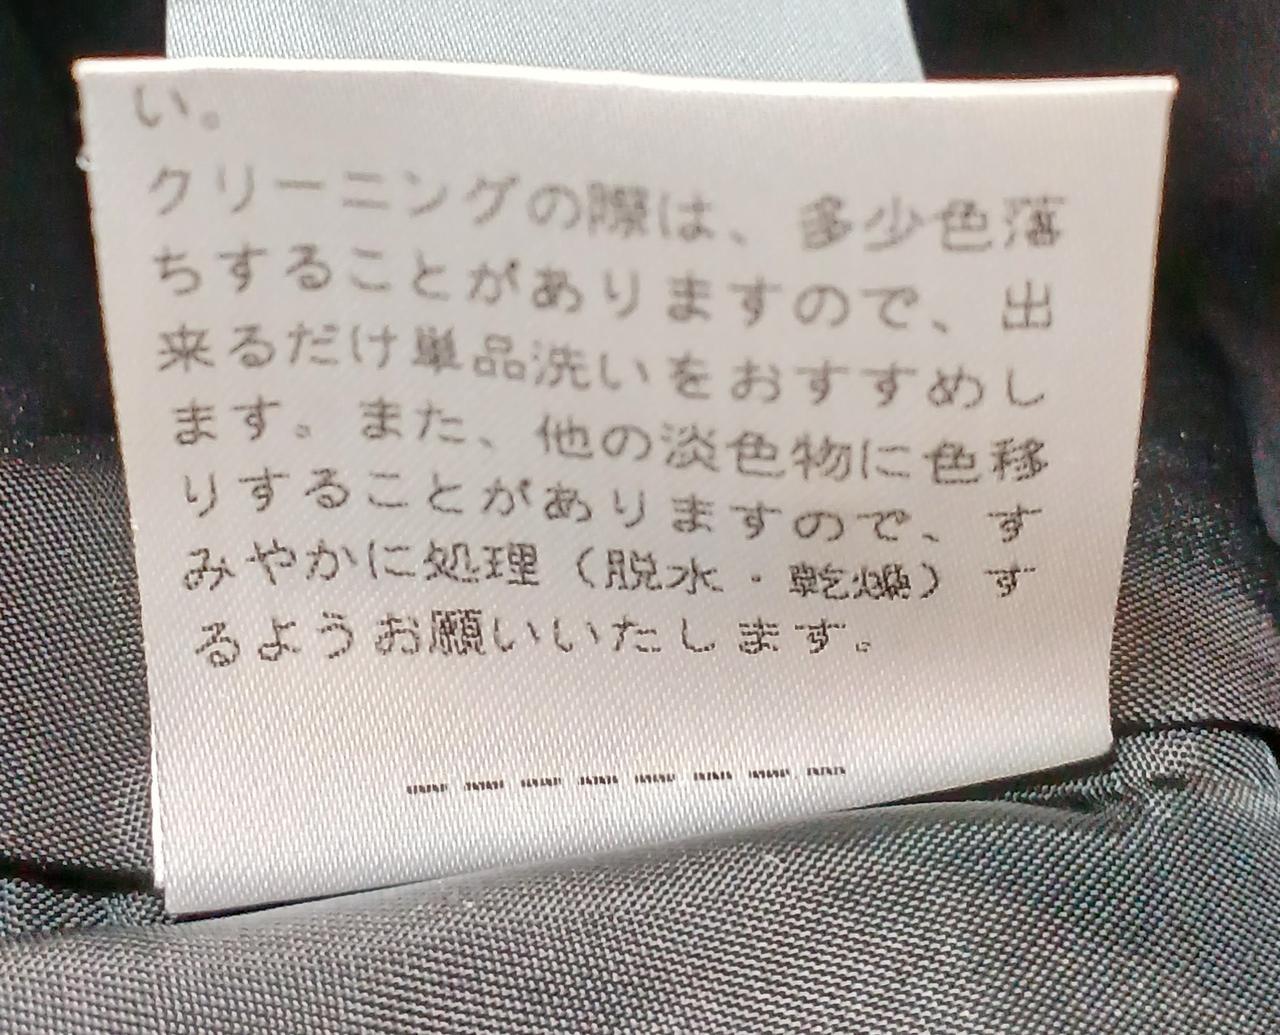 い。
クリーニングの際は、多少色落
ちすることがありますので、出
来るだけ単品洗いをおすすめし
ます。また、他の淡色物に色移
りすることがありますので、す
みやかに処理（脱水・乾燥）す
るようお願いいたします。